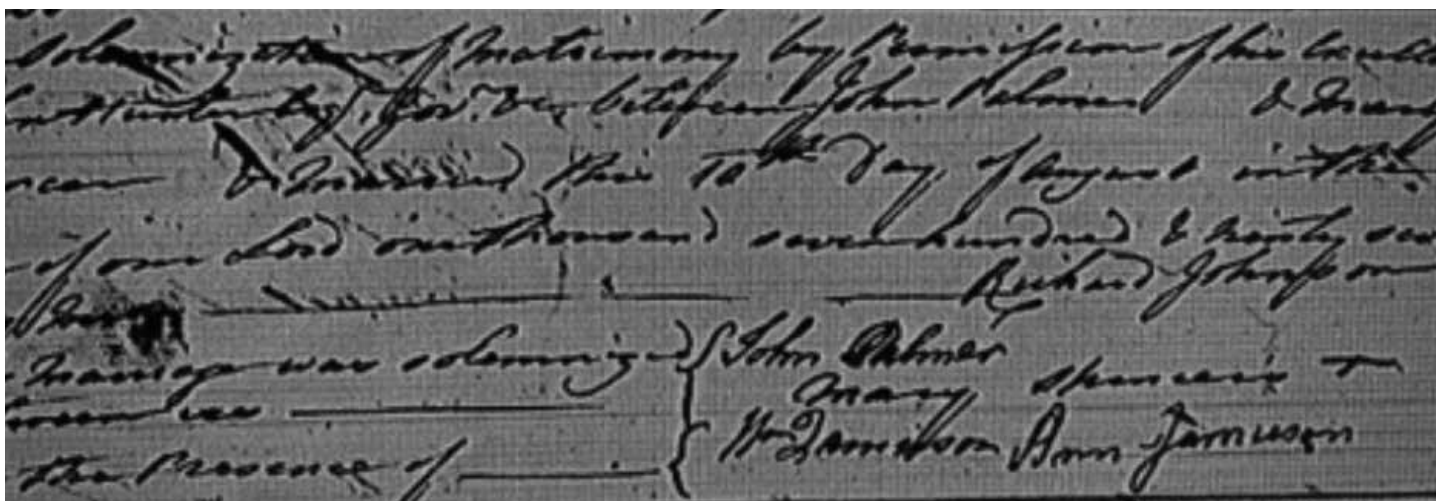 Solemnization of Matrimony by Permission of his Excell
Hunter Esq. Gov. &c, between John Palmer & Mary
& Married this 10th Day, of August in the
of our Lord one thousand seven hundred & ninty sev
Richard Johnson
Marriage was solemnized { John Palmer
tween us Mary Spencers +
the Presence of { Wm Jamieson Ann Jamieson